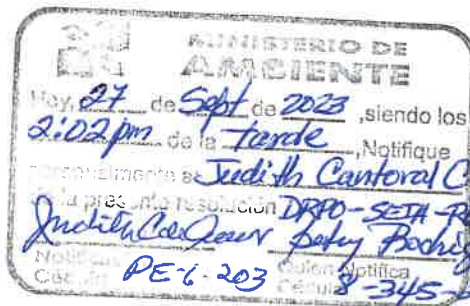 MINISTERIO DE
AMBIENTE
Hoy, 27 de Sept de 2023, siendo los
2:02 pm de la tarde, Notifique
personalmente a Judith Cantoral C
de la presente resolución DRPO-SEIA-R
Judith
Notificado Quien Notifica
Cédula PE-6-203 Cédula 8-345-